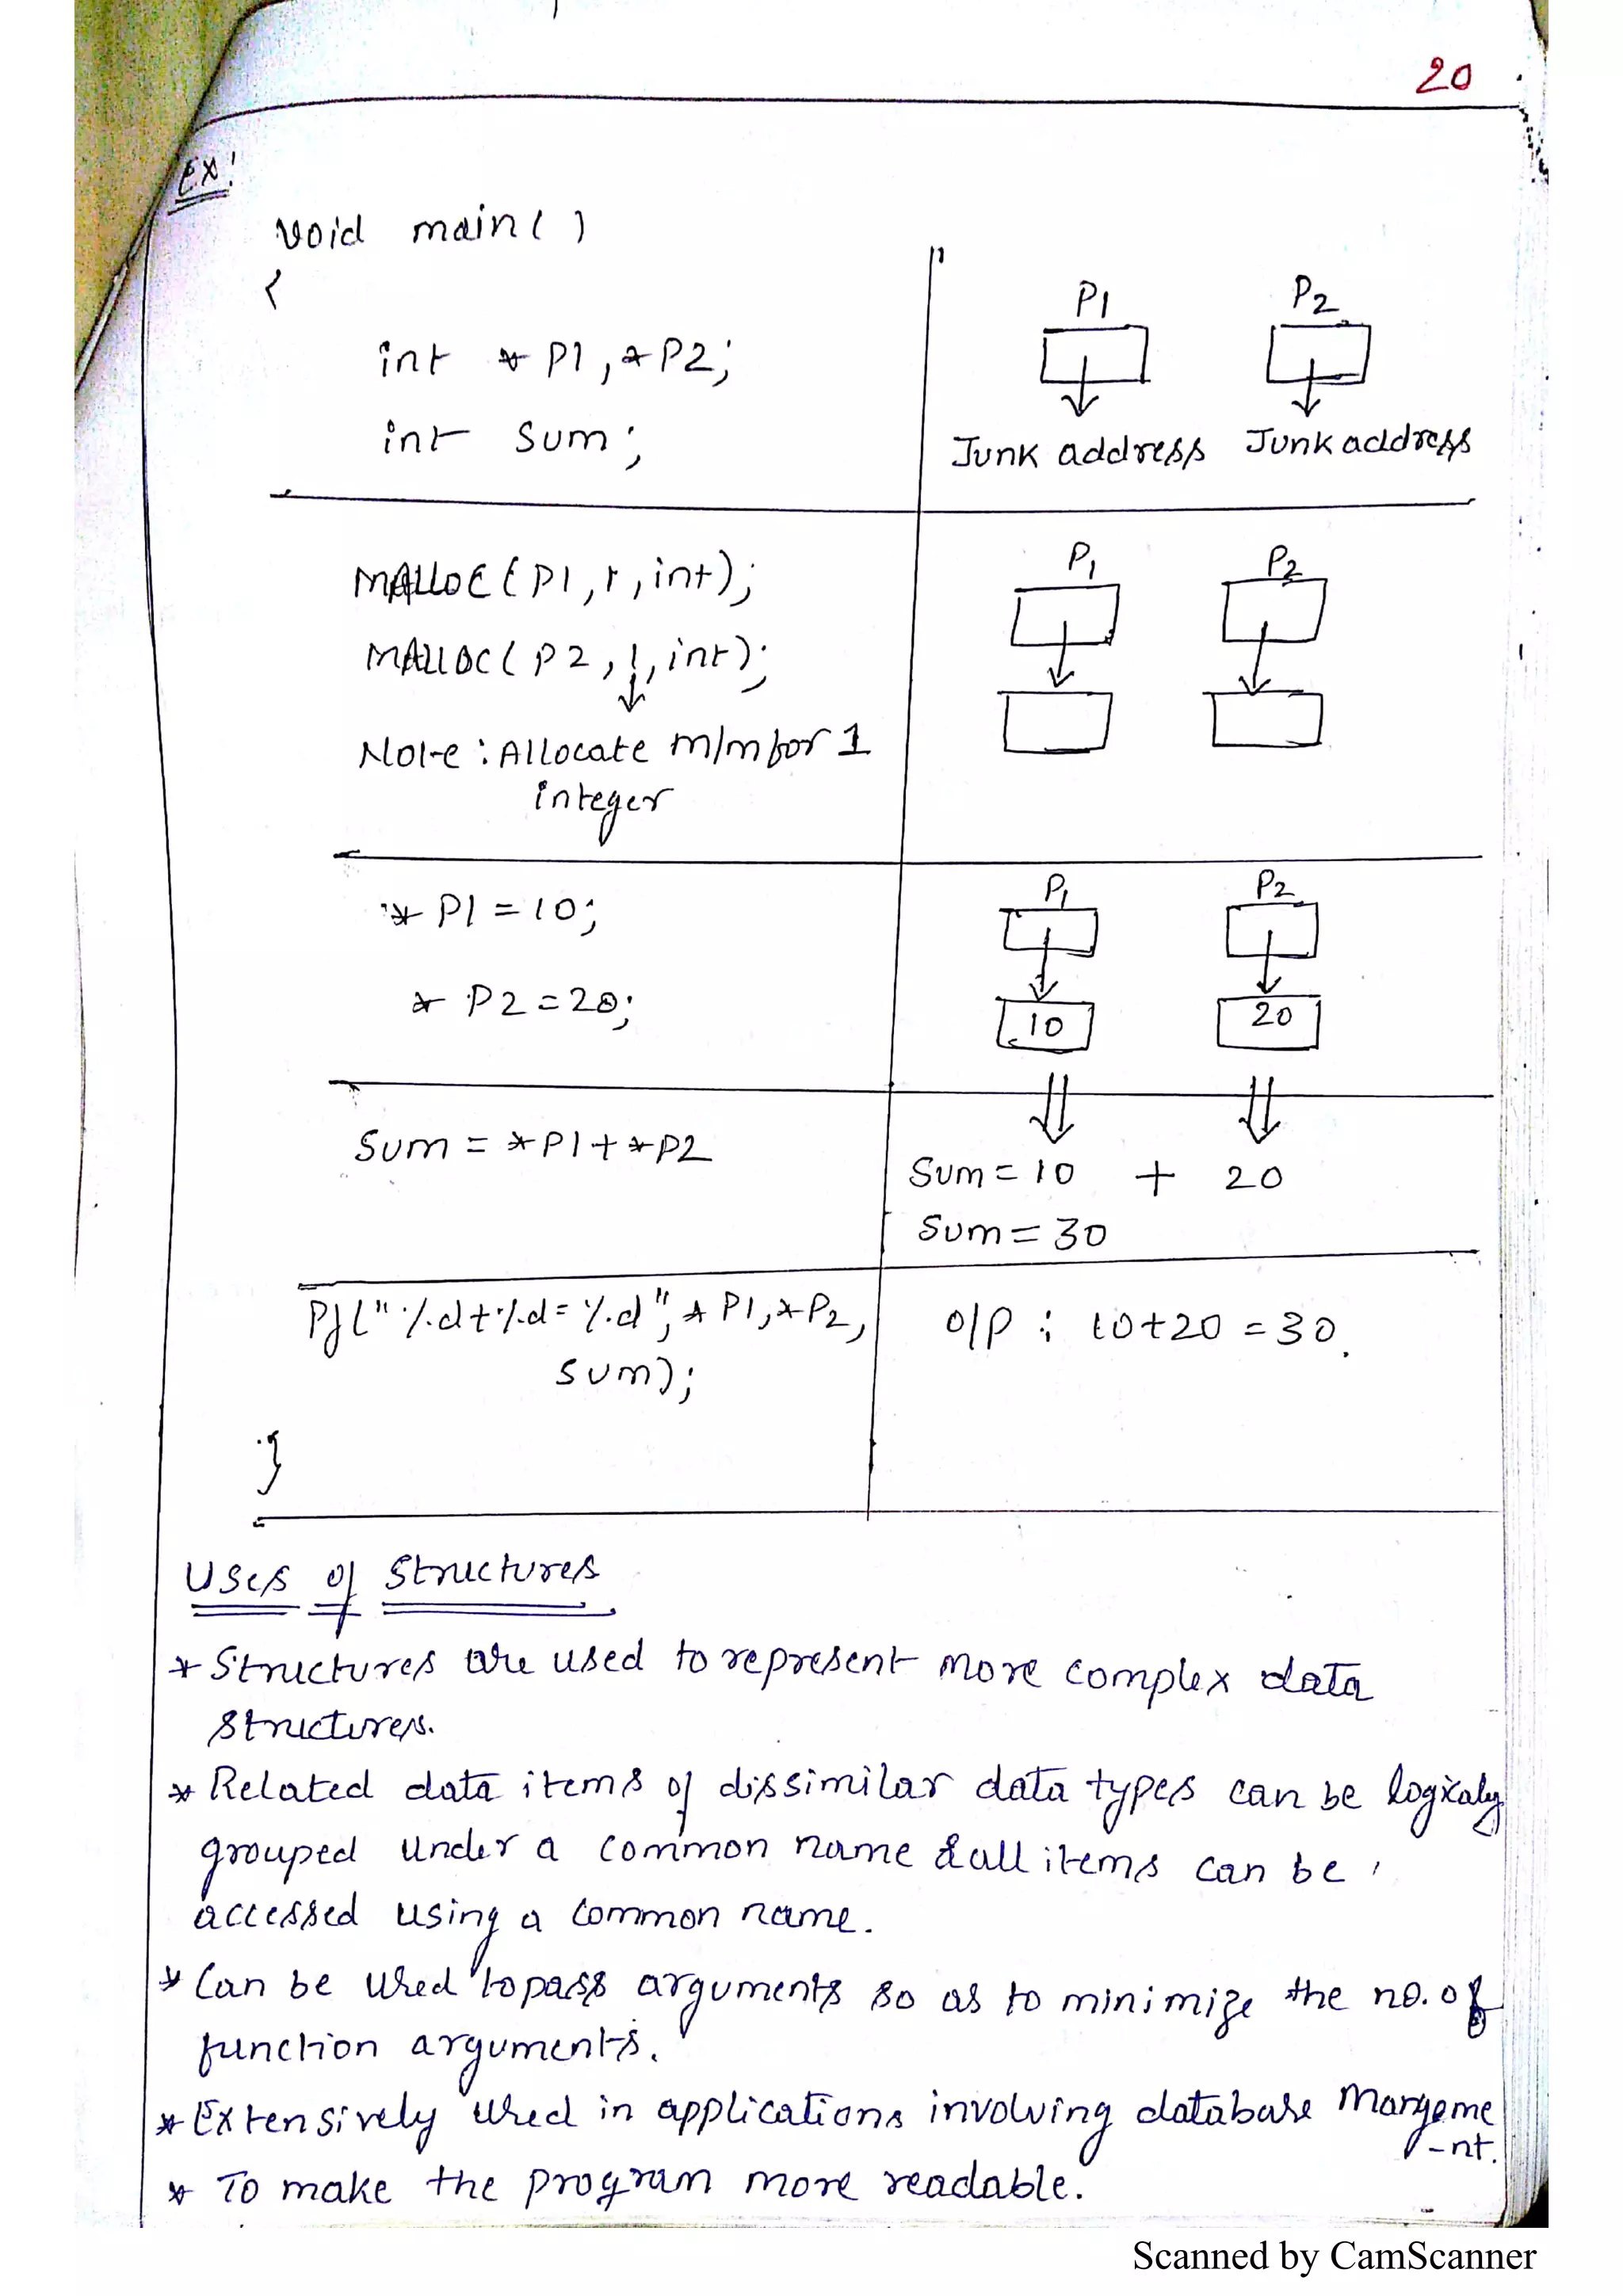 20
Ex!
void main( )
{
int * P1, *P2;
int sum;
P1 P2
Junk address Junk address
MALLOC(P1, 1, int);
MALLOC(P2, 1, int);
Note: Allocate m/m for 1
integer
P1 P2
*P1 = 10;
*P2 = 20;
P1 P2
10 20
Sum = *P1 + *P2
Sum = 10 + 20
Sum = 30
Pf("%d+%d=%d", *P1, *P2,
sum);
o/p : 10+20 = 30.
}
Uses of Structures
* Structures are used to represent more complex data
structures.
* Related data items of dissimilar data types can be logicaly
grouped under a common name & all items can be
accessed using a common name.
* Can be used to pass arguments so as to minimize the no. of
function arguments.
* Extensively used in applications involving database Mangeme
-nt.
* To make the program more readable.
Scanned by CamScanner